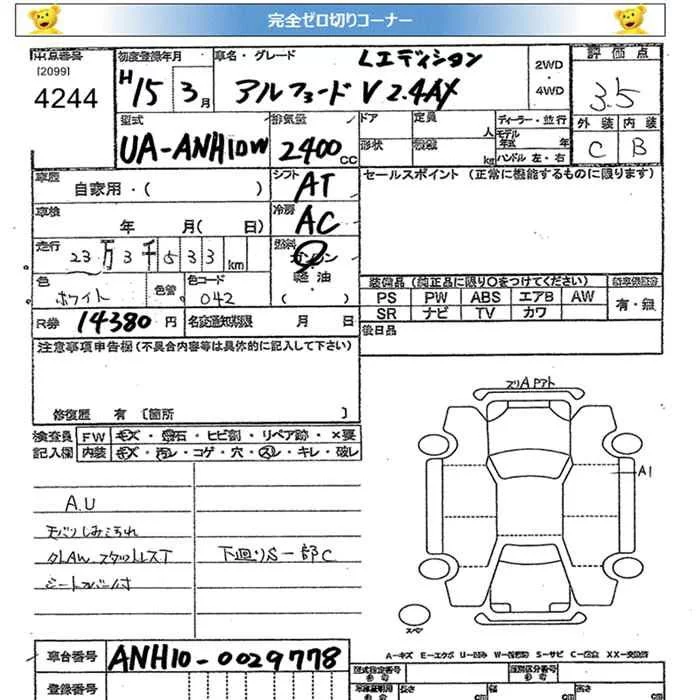 完全ゼロ切りコーナー
出品番号 初度登録年月 車名・グレード Lエディション 2WD 評価点
[2099]
4244 H15 3月 アルファード V 2.4AX ・ 4WD 3.5
型式 排気量 ドア 定員 人 ディーラー・並行 外装 内装
UA-ANH10W 2400cc 形状 積載 kg モデル年式 年 C B
ハンドル 左・右
車歴 自家用・( ) シフト AT セールスポイント (正常に機能するものに限ります)
車検 年 月( 日) 冷房 AC
走行 23万3千533km 燃料 ガソリン
軽油
( )
色 ホワイト 色替 色コード 042
装備品 (純正品に限り○をつけてください)
PS PW ABS エアB AW 有・無
SR ナビ TV カワ
R券 14380円 名変通知期限 月 日 後日品
注意事項申告欄 (不具合内容等は具体的に記入して下さい)
修復歴 有 [箇所 ]
検査員 FW キズ・飛石・ヒビ割・リペア跡・×要
記入欄 内装 キズ・汚レ・コゲ・穴・スレ・キレ・破レ
A.U
天バリしみよごれ
下廻りS一部C
シートカバー付
スリA Pアト
A1
スペア
A-キズ E-エクボ U-凹み W-補修跡 S-サビ C-腐食 XX-交換済
車台番号 ANH10-0029778
登録番号
型式指定番号 類別区分番号
長さ cm 幅 cm 高さ cm